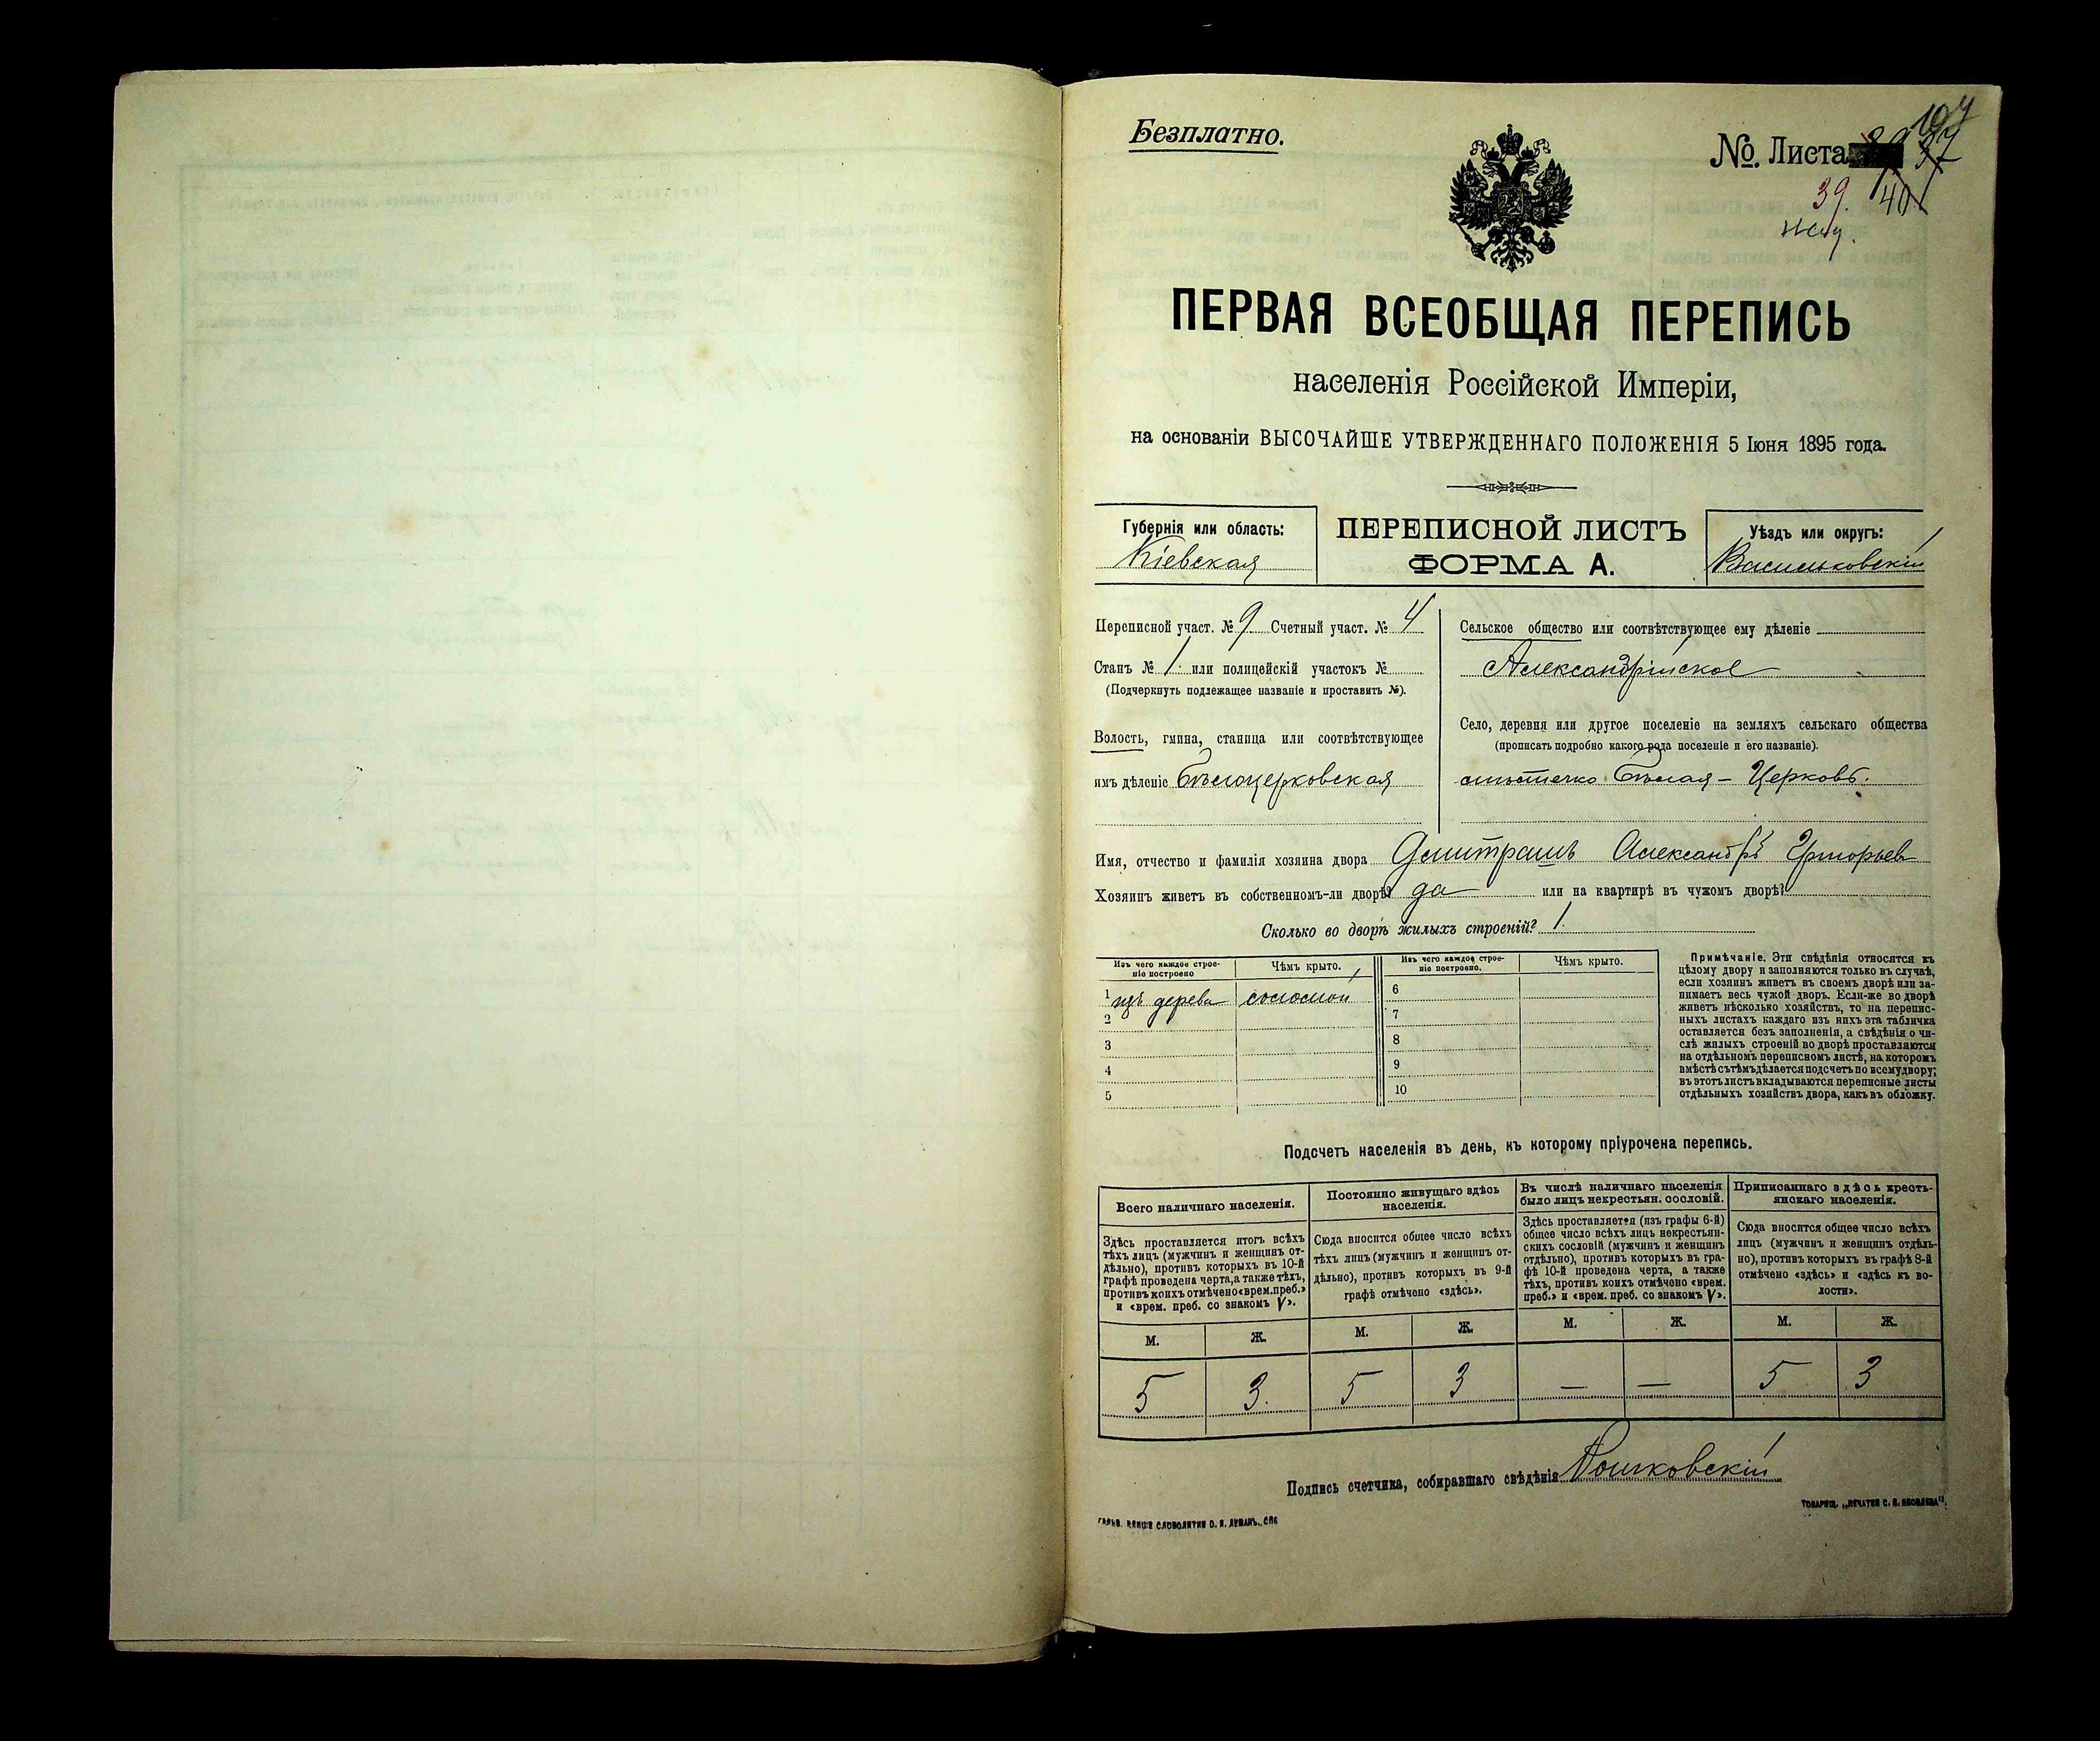 Безплатно.
№ Листа
39.
40
ПЕРВАЯ ВСЕОБЩАЯ ПЕРЕПИСЬ
населенія Россійской Имперіи,
на основаніи ВЫСОЧАЙШЕ УТВЕРЖДЕННАГО ПОЛОЖЕНІЯ 5 Іюня 1895 года.
Губернія или область:
Кіевская
ПЕРЕПИСНОЙ ЛИСТЪ
ФОРМА А.
Уѣздъ или округъ:
Васильковскій
Переписной участ. № 9 Счетный участ. № 4
Станъ № 1. или полицейскій участокъ №
(Подчеркнуть подлежащее названіе и проставить №).
Волость, гмина, станица или соотвѣтствующее
имъ дѣленіе Бѣлоцерковская
Сельское общество или соотвѣтствующее ему дѣленіе
Александрійское
Село, деревня или другое поселеніе на земляхъ сельскаго общества
(прописать подробно какого рода поселеніе и его названіе).
мѣстечко Бѣлая - Церковь.
Имя, отчество и фамилія хозяина двора Демитрашъ Александръ Григорьев
Хозяинъ живетъ въ собственномъ-ли дворѣ? да или на квартирѣ въ чужомъ дворѣ?
Сколько во дворѣ жилыхъ строеній? 1.
Изъ чего каждое строе-
ніе построено
Чѣмъ крыто.
Изъ чего каждое строе-
ніе построено.
Чѣмъ крыто.
1 изъ дерева соломой
2
3
4
5
6
7
8
9
10
Примѣчаніе. Эти свѣдѣнія относятся къ
цѣлому двору и заполняются только въ случаѣ,
если хозяинъ живетъ въ своемъ дворѣ или за-
нимаетъ весь чужой дворъ. Если-же во дворѣ
живетъ нѣсколько хозяйствъ, то на перепис-
ныхъ листахъ каждаго изъ нихъ эта табличка
оставляется безъ заполненія, а свѣдѣнія о чи-
слѣ жилыхъ строеній во дворѣ проставляются
на отдѣльномъ переписномъ листѣ, на которомъ
вмѣстѣ съ тѣмъ дѣлается подсчетъ по всему двору;
въ этотъ листъ вкладываются переписные листы
отдѣльныхъ хозяйствъ двора, какъ въ обложку.
Подсчетъ населенія въ день, къ которому пріурочена перепись.
Всего наличнаго населенія.
Здѣсь проставляется итогъ всѣхъ
тѣхъ лицъ (мужчинъ и женщинъ от-
дѣльно), противъ которыхъ въ 10-й
графѣ проведена черта, а также тѣхъ,
противъ коихъ отмѣчено «врем. преб.»
и «врем. преб. со знакомъ V».
Постоянно живущаго здѣсь
населенія.
Сюда вносится общее число всѣхъ
тѣхъ лицъ (мужчинъ и женщинъ от-
дѣльно), противъ которыхъ въ 9-й
графѣ отмѣчено «здѣсь».
Въ числѣ наличнаго населенія
было лицъ некрестьян. сословій.
Здѣсь проставляется (изъ графы 6-й)
общее число всѣхъ лицъ некрестьян-
скихъ сословій (мужчинъ и женщинъ
отдѣльно), противъ которыхъ въ гра-
фѣ 10-й проведена черта, а также
тѣхъ, противъ коихъ отмѣчено «врем.
преб.» и «врем. преб. со знакомъ V».
Приписаннаго здѣсь кресть-
янскаго населенія.
Сюда вносится общее число всѣхъ
лицъ (мужчинъ и женщинъ отдѣль-
но), противъ которыхъ въ графѣ 8-й
отмѣчено «здѣсь» и «здѣсь къ во-
лости».
М. Ж. М. Ж. М. Ж. М. Ж.
5 3. 5 3 — — 5 3
Подпись счетчика, собиравшаго свѣдѣнія
ТОВАРИЩ. „ПЕЧАТНЯ С. П. ЯКОВЛЕВА".
СЛОВОЛИТНИ О. И. ЛЕМАНЪ. СПБ